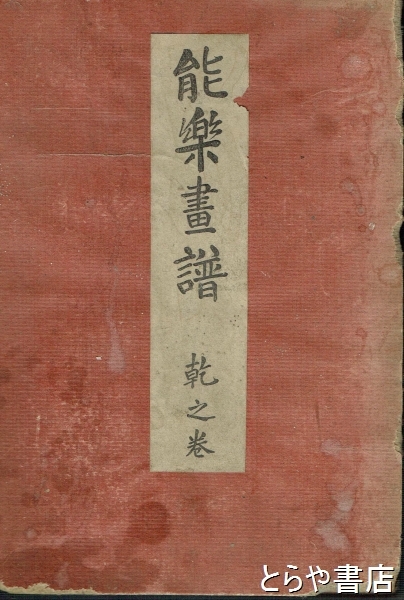 能樂畫譜
乾之卷
とらや書店